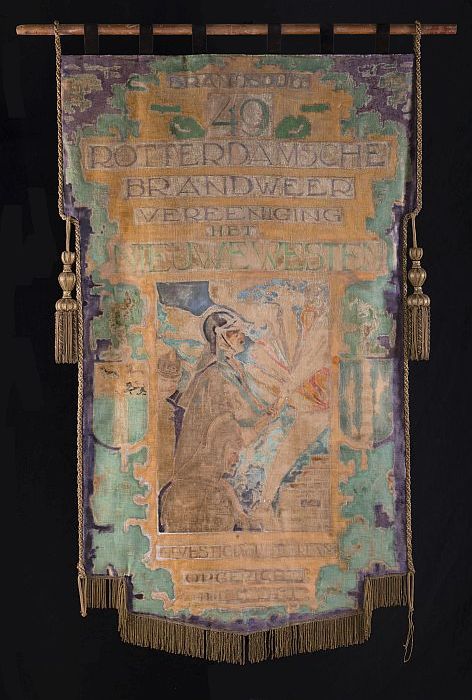 49
ROTTERDAMSCHE
BRANDWEER
VEREENIGING
HET
NIEUWE WESTEN
GEVESTIGD
OPGERICHT